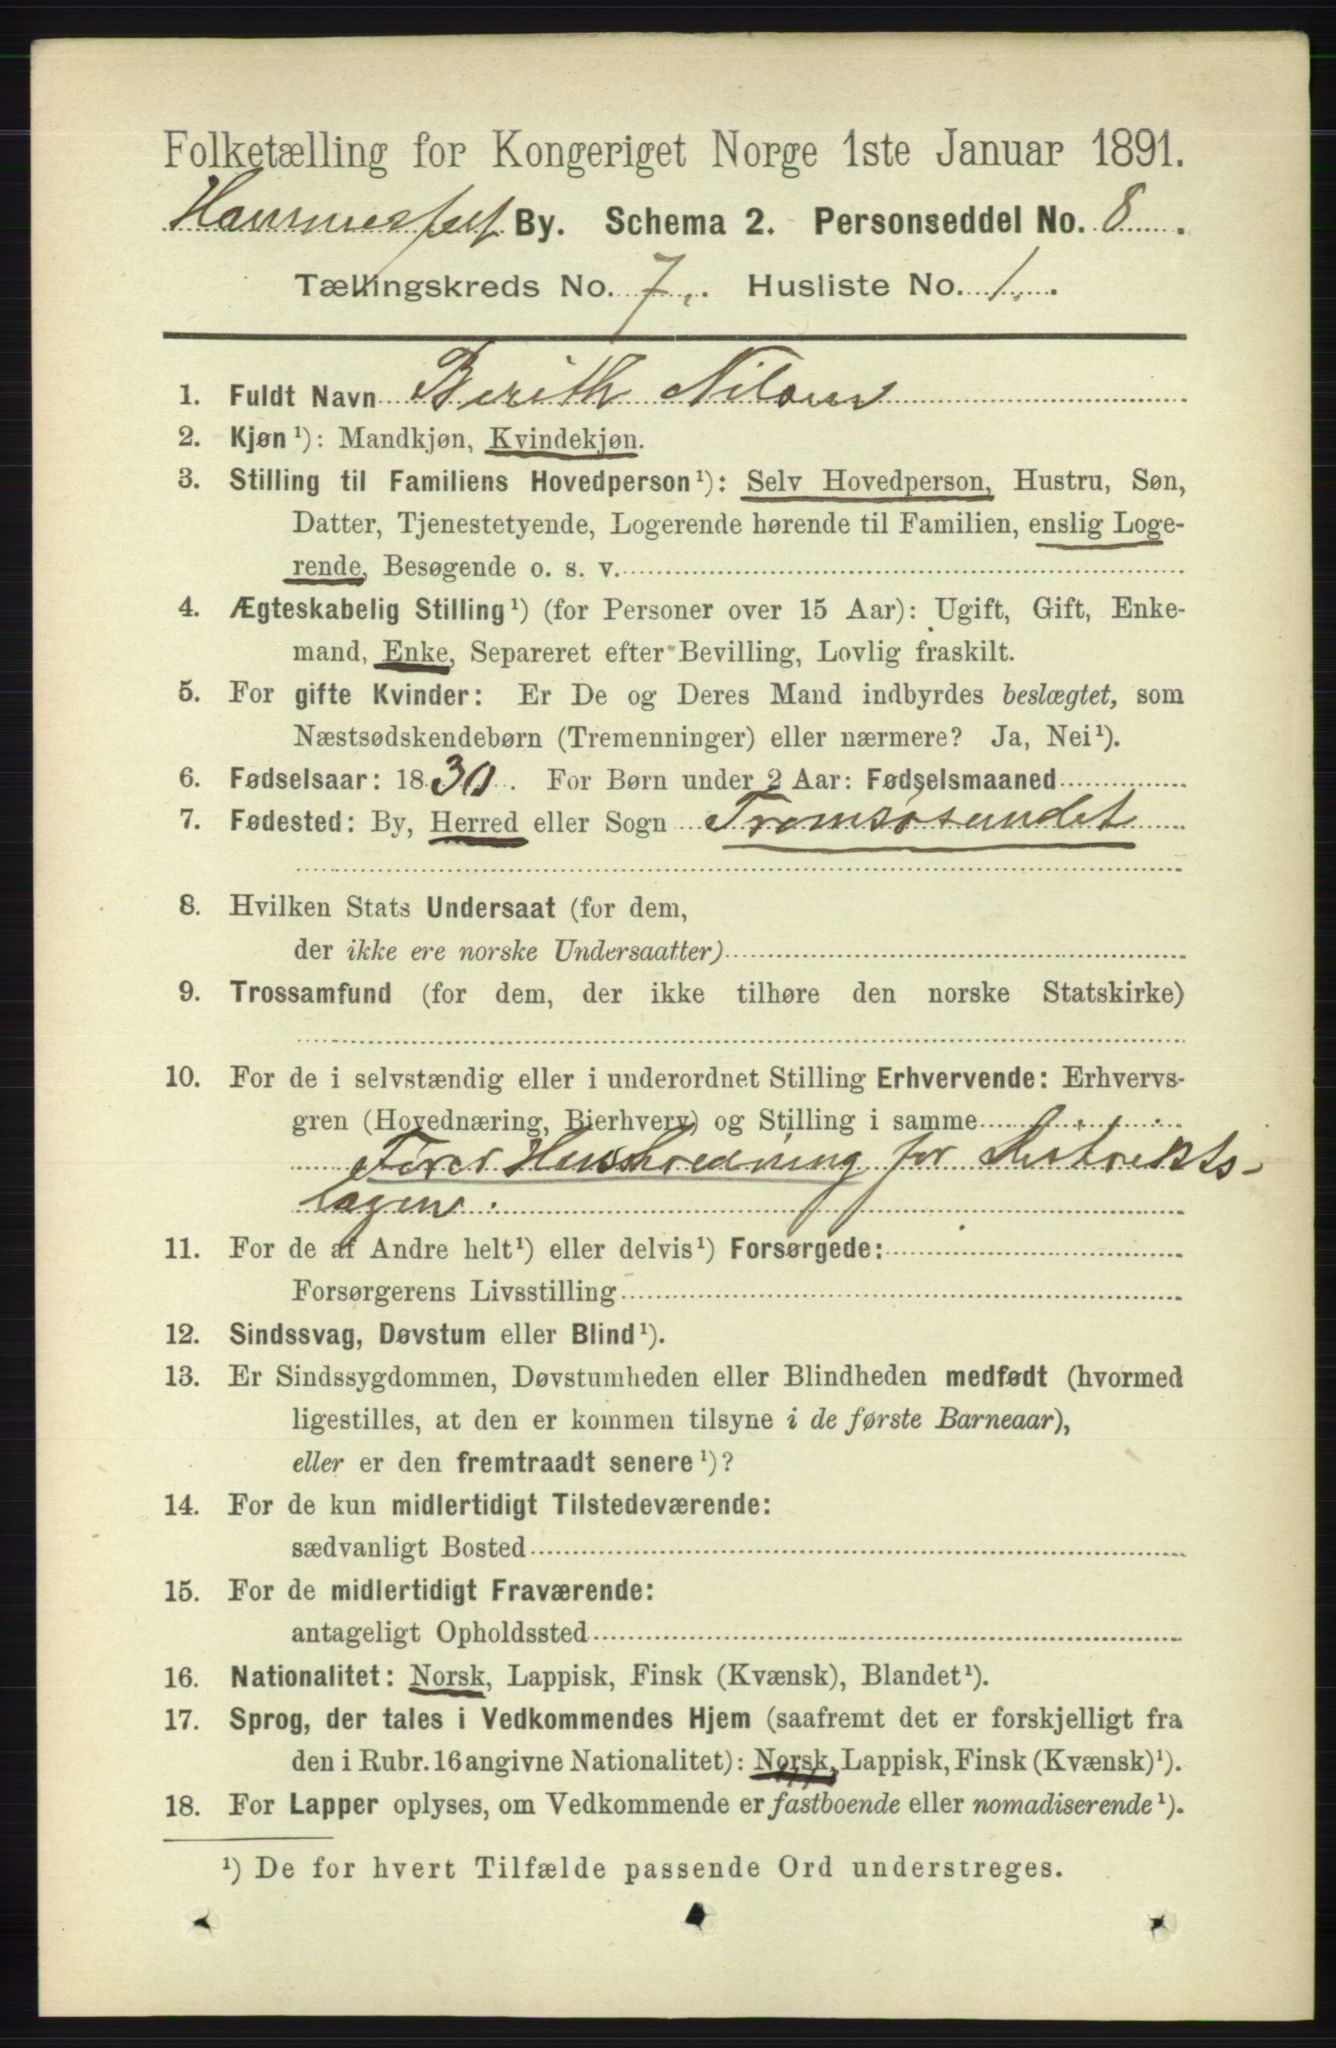 Folketælling for Kongeriget Norge 1ste Januar 1891.
Hammerfest By. Schema 2. Personseddel No. 8.
Tællingskreds No. 7. Husliste No. 1.
1. Fuldt Navn Berith Nilsen
2. Kjøn¹): Mandkjøn, Kvindekjøn.
3. Stilling til Familiens Hovedperson¹): Selv Hovedperson, Hustru, Søn,
Datter, Tjenestetyende, Logerende hørende til Familien, enslig Loge-
rende, Besøgende o. s. v.
4. Ægteskabelig Stilling¹) (for Personer over 15 Aar): Ugift, Gift, Enke-
mand, Enke, Separeret efter Bevilling, Lovlig fraskilt.
5. For gifte Kvinder: Er De og Deres Mand indbyrdes beslægtet, som
Næstsødskendebørn (Tremenninger) eller nærmere? Ja, Nei¹).
6. Fødselsaar: 1830. For Børn under 2 Aar: Fødselsmaaned
7. Fødested: By, Herred eller Sogn Tromsøsundet
8. Hvilken Stats Undersaat (for dem,
der ikke ere norske Undersaatter)
9. Trossamfund (for dem, der ikke tilhøre den norske Statskirke)
10. For de i selvstændig eller i underordnet Stilling Erhvervende: Erhvervs-
gren (Hovednæring, Bierhverv) og Stilling i samme
Fører Husholdning for Distrikts-
lægen.
11. For de af Andre helt¹) eller delvis¹) Forsørgede:
Forsørgerens Livsstilling
12. Sindssvag, Døvstum eller Blind¹).
13. Er Sindssygdommen, Døvstumheden eller Blindheden medfødt (hvormed
ligestilles, at den er kommen tilsyne i de første Barneaar),
eller er den fremtraadt senere¹)?
14. For de kun midlertidigt Tilstedeværende:
sædvanligt Bosted
15. For de midlertidigt Fraværende:
antageligt Opholdssted
16. Nationalitet: Norsk, Lappisk, Finsk (Kvænsk), Blandet¹).
17. Sprog, der tales i Vedkommendes Hjem (saafremt det er forskjelligt fra
den i Rubr. 16 angivne Nationalitet): Norsk, Lappisk, Finsk (Kvænsk)¹).
18. For Lapper oplyses, om Vedkommende er fastboende eller nomadiserende¹).
¹) De for hvert Tilfælde passende Ord understreges.